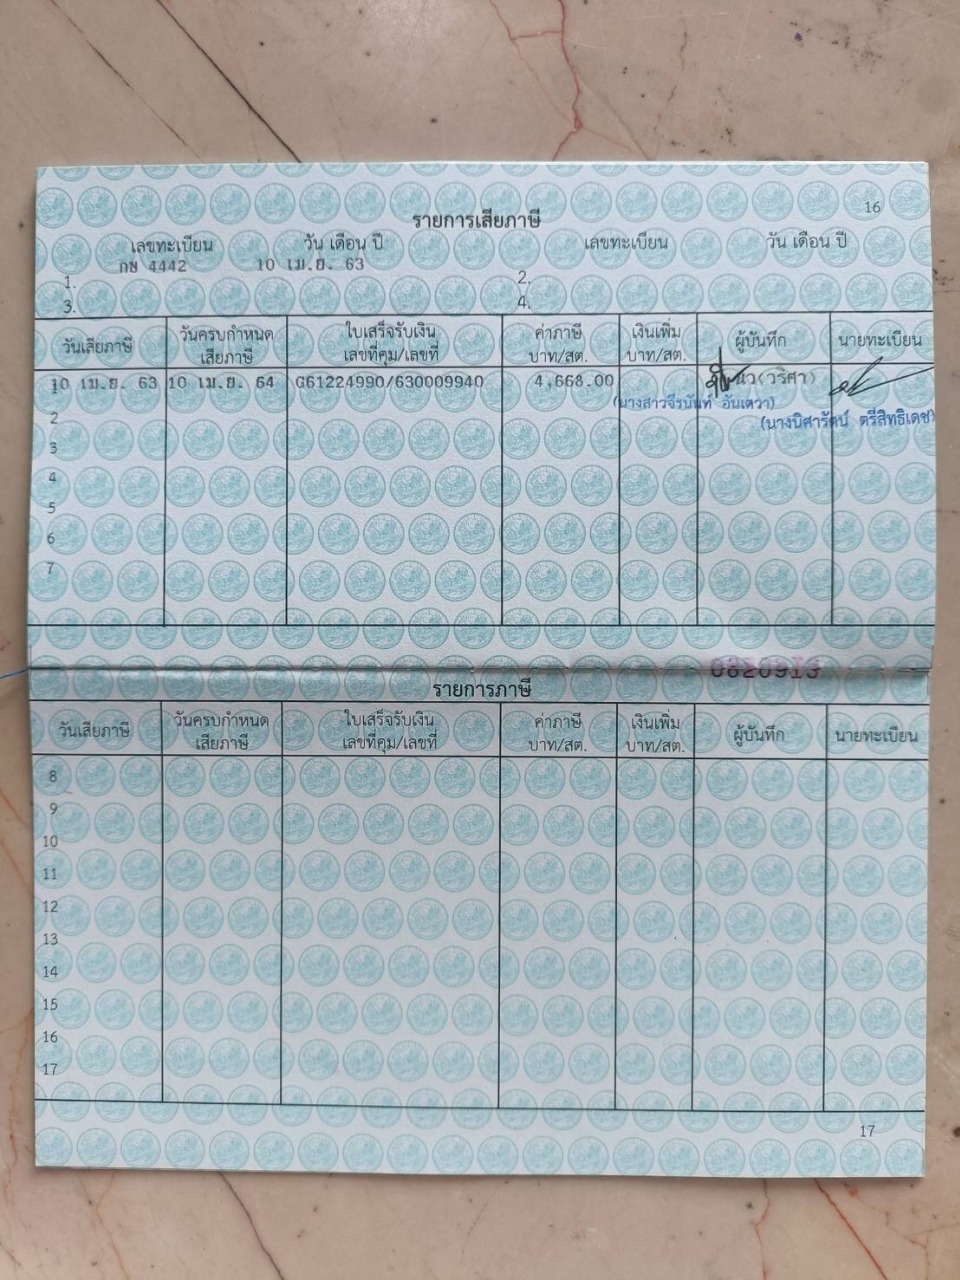 16
รายการเสียภาษี
เลขทะเบียน วัน เดือน ปี เลขทะเบียน วัน เดือน ปี
1. กษ 4442 10 เม.ย. 63 2.
3. 4.
วันเสียภาษี วันครบกำหนด เสียภาษี ใบเสร็จรับเงิน เลขที่คุม/เลขที่ ค่าภาษี บาท/สต. เงินเพิ่ม บาท/สต. ผู้บันทึก นายทะเบียน
1 10 เม.ย. 63 10 เม.ย. 64 G61224990/630009940 4,668.00 (วริศา)
(นางสาวจีรนันท์ อันเตวา)
2 (นางนิศารัตน์ ตรีสิทธิเดช)
3
4
5
6
7
0820913
รายการภาษี
วันเสียภาษี วันครบกำหนด เสียภาษี ใบเสร็จรับเงิน เลขที่คุม/เลขที่ ค่าภาษี บาท/สต. เงินเพิ่ม บาท/สต. ผู้บันทึก นายทะเบียน
8
9
10
11
12
13
14
15
16
17
17